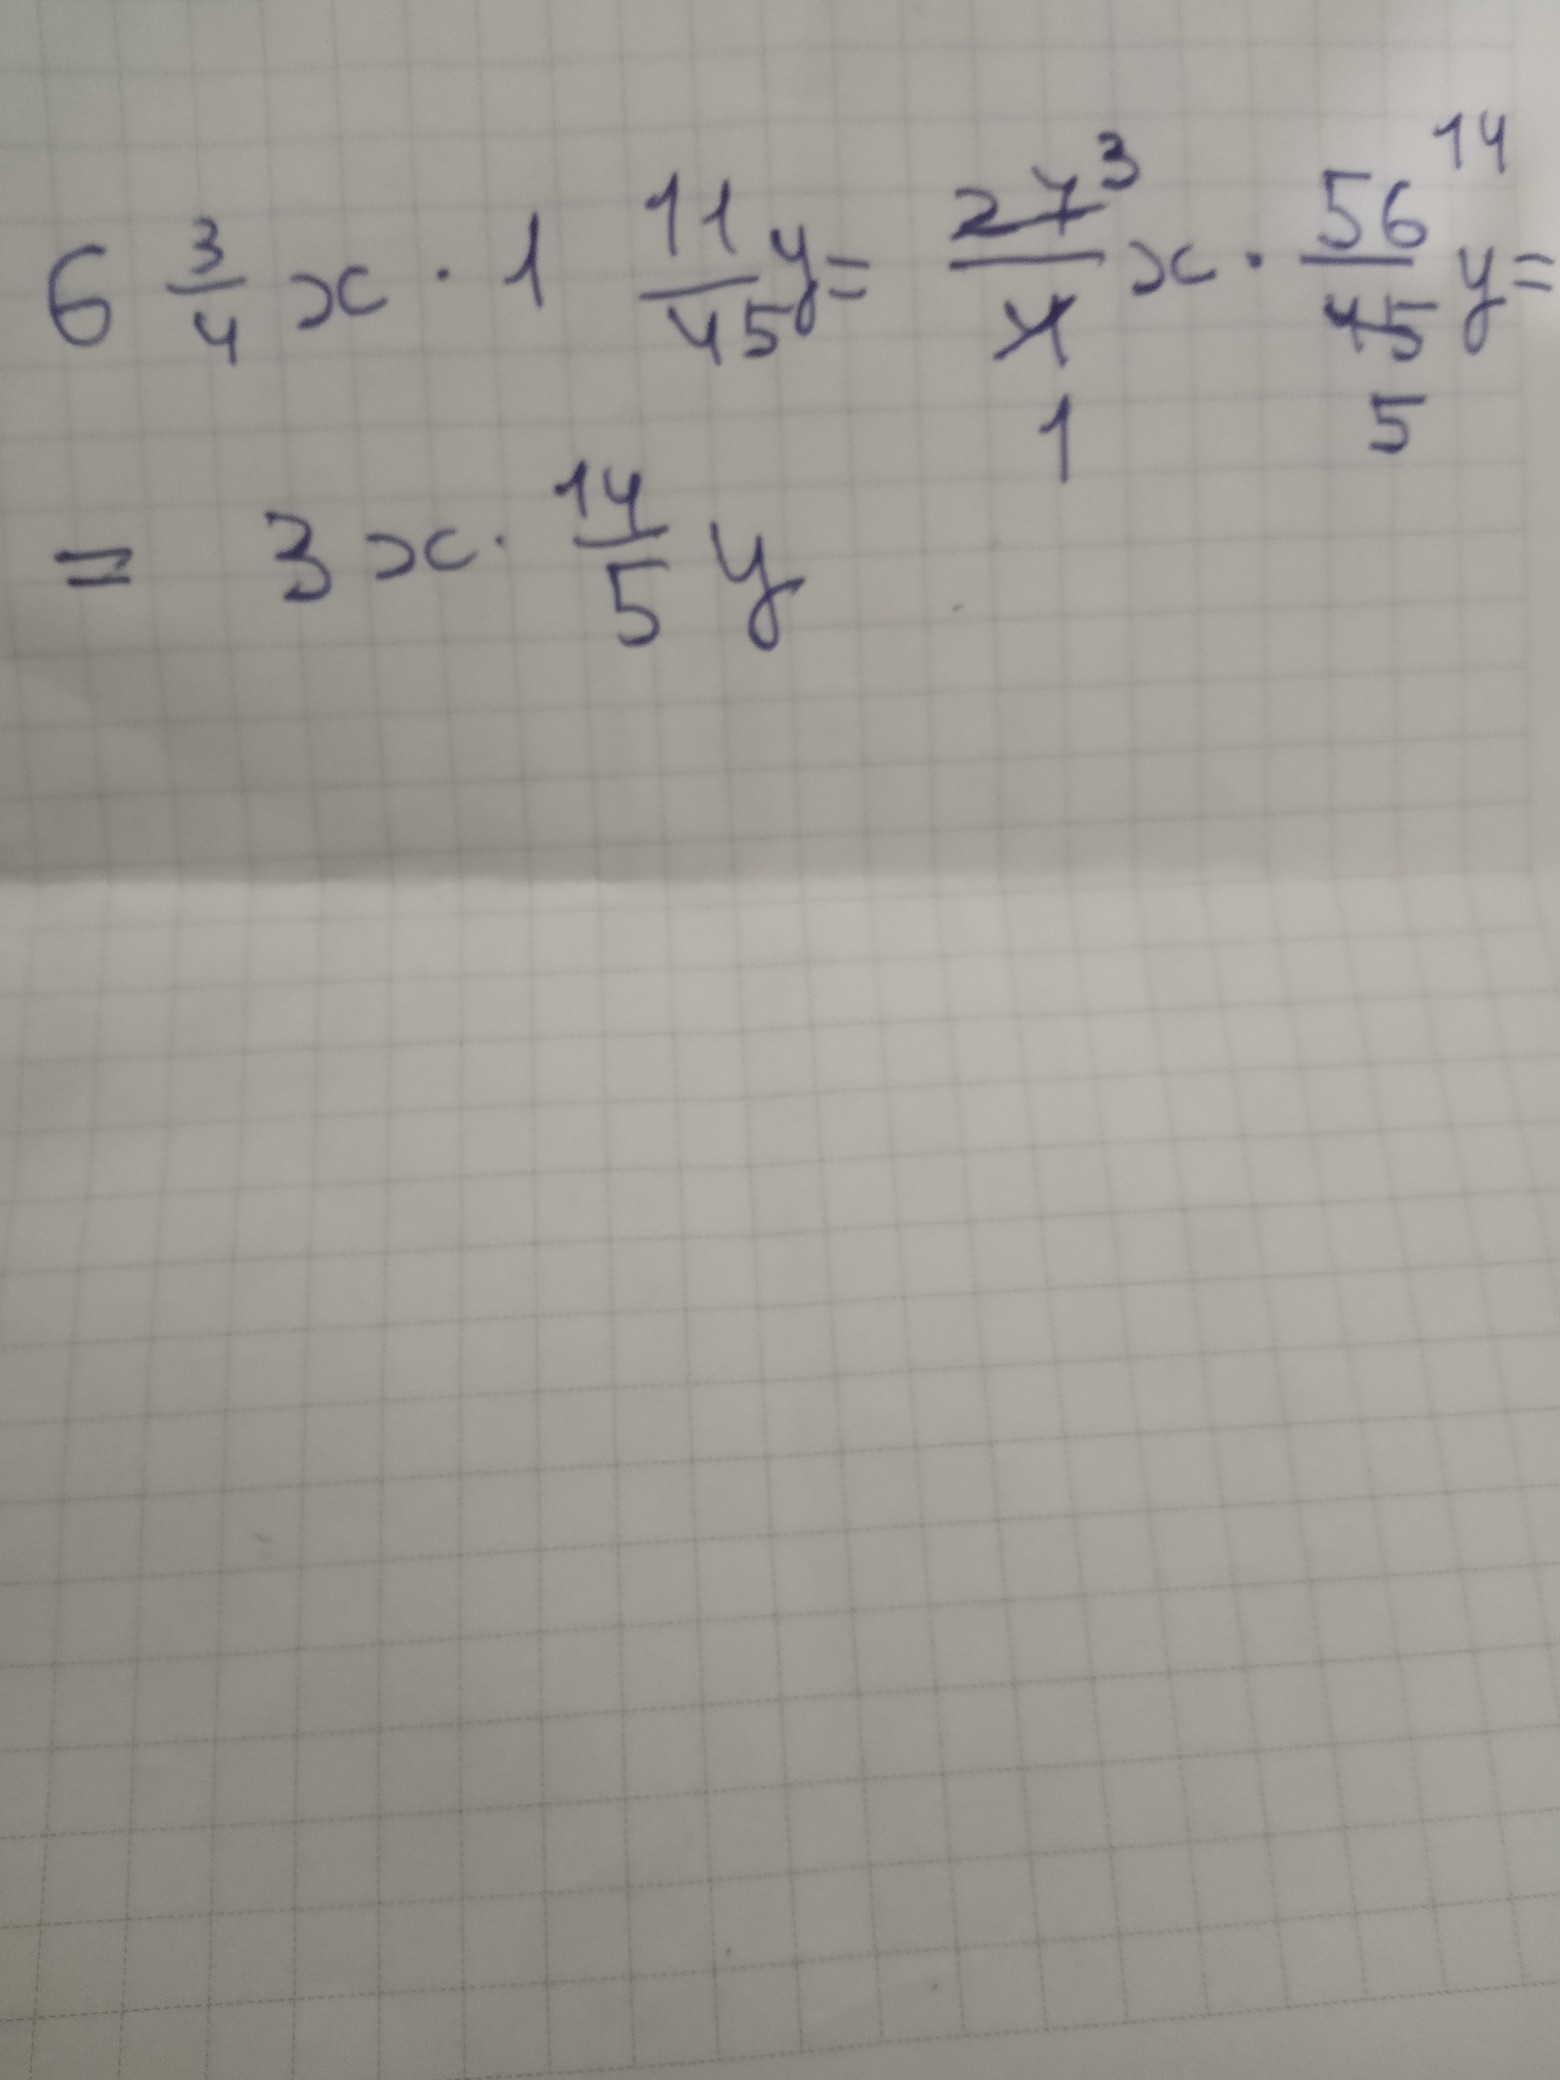 6 3/4 x · 1 11/45 y = 27 3/4 1 x · 56 14/45 5 y =
= 3 x · 14/5 y